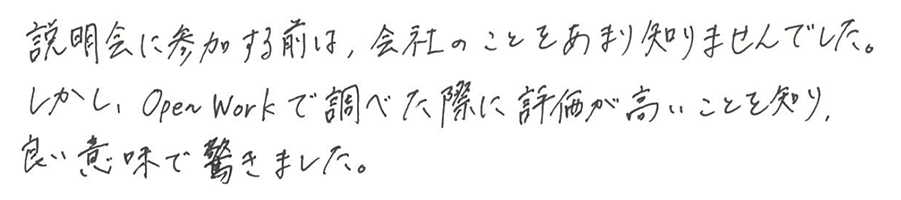 説明会に参加する前は、会社のことをあまり知りませんでした。
しかし、Open Workで調べた際に評価が高いことを知り、
良い意味で驚きました。